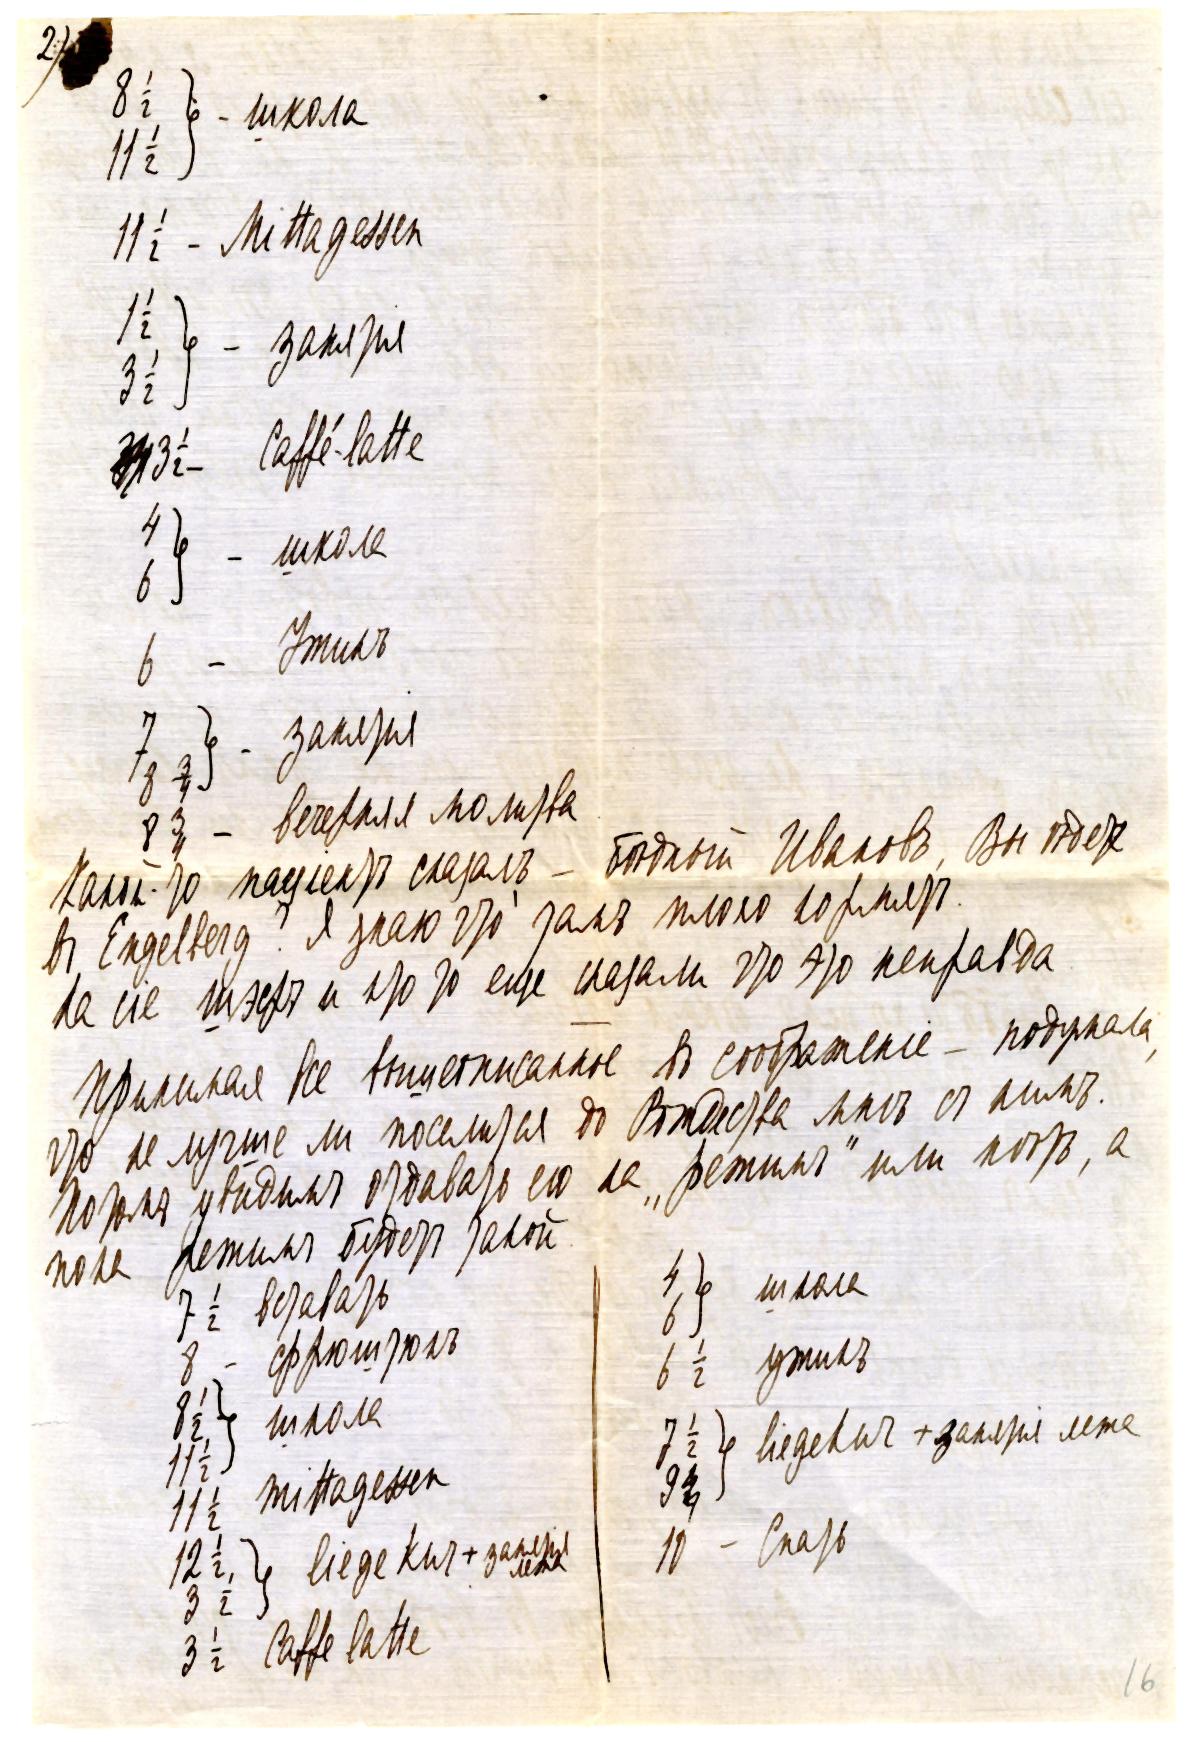 2)
8 1/2 } - школа
11 1/2
11 1/2 - Mittagessen
1 1/2 } - занятiя
3 1/2
3 1/2 - Caffé-latte
4 } - школа
6
6 - Ужинъ
7 } - занятiя
8 3/4
8 3/4 - вечерняя молитва
Какой-то пацiентъ сказалъ - бѣдный Ивановъ, Вы
въ Engelberg? Я знаю что тамъ плохо кормятъ.
На сiе шэфъ и кто то еще сказали что это неправда
Принимая все вышеописанное въ соображенiе - подумала,
что не лучше ли поселиться до Рождества мнѣ съ нимъ.
Потомъ увидимъ отдавать его на „режимъ" или нѣтъ, а
пока режимъ будетъ такой
7 1/2 вставать
8 - фрюштюкъ
8 1/2 } школа
11 1/2
11 1/2 Mittagessen
12 1/2 } liege kur + занятiя лежа
3 1/2
3 1/2 Caffe latte
4 } школа
6
6 1/2 ужинъ
7 1/2 } liegekur + занятiя лежа
9 3/4
10 - Спать
16